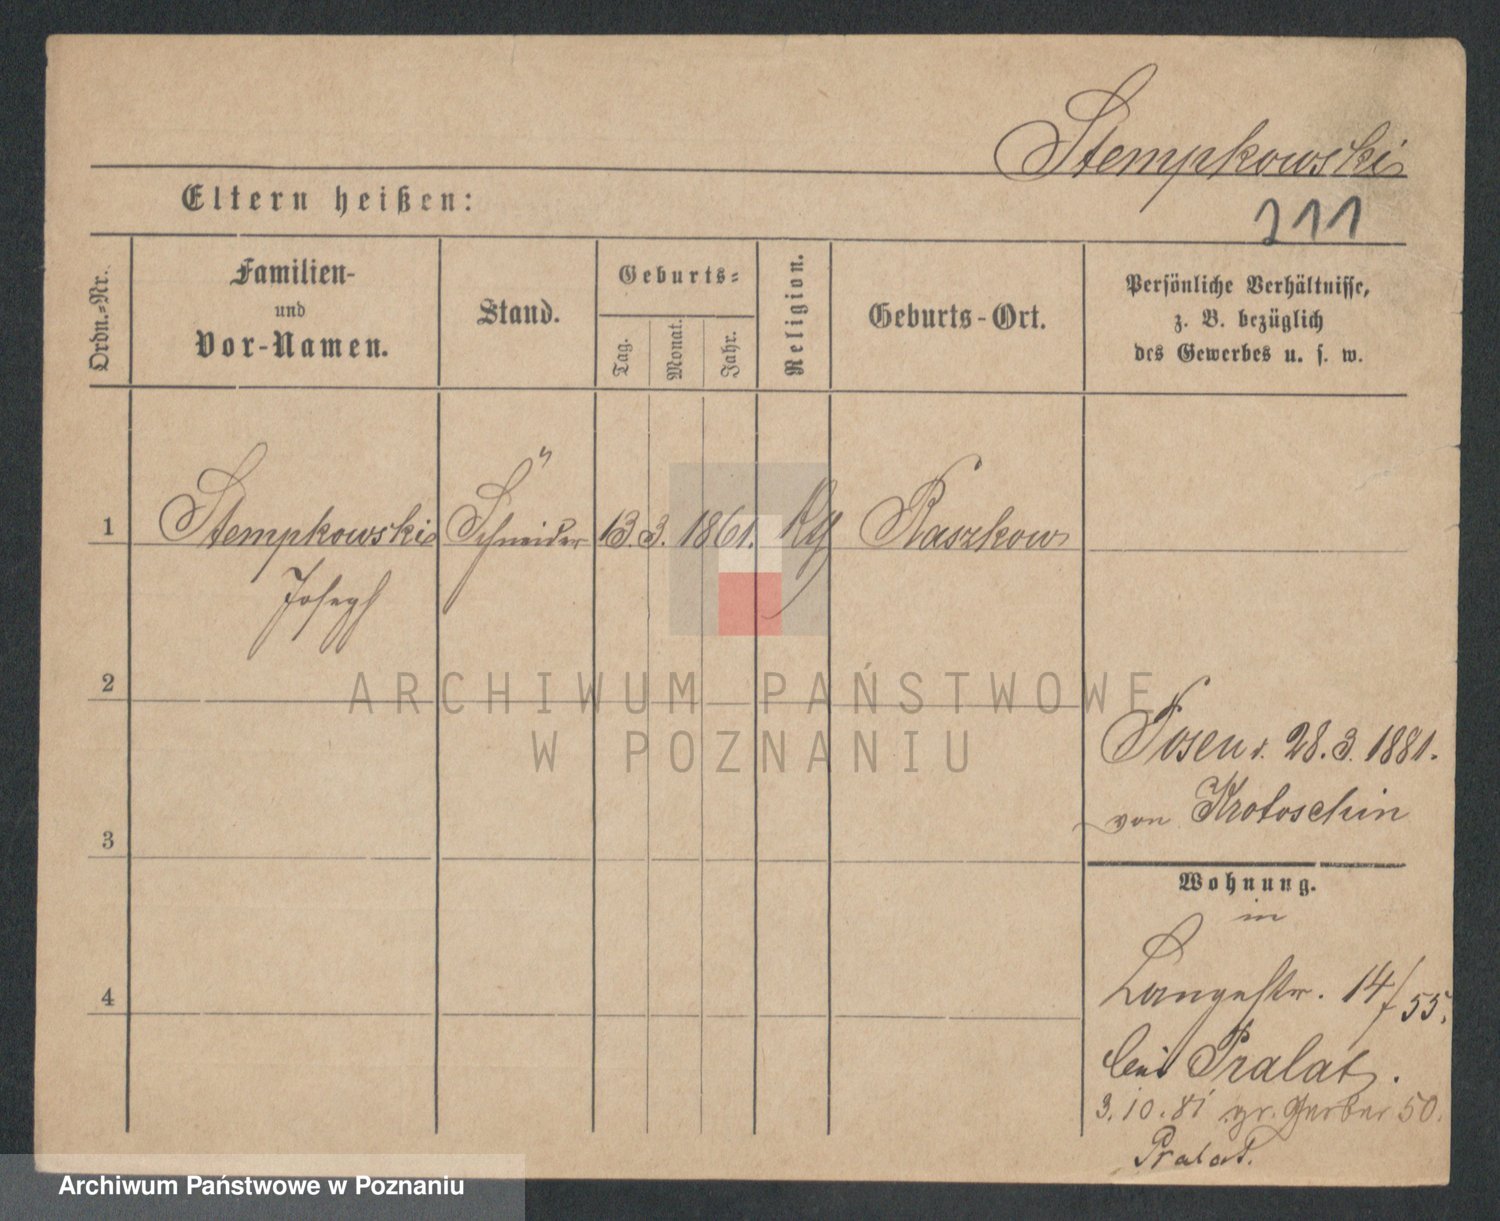 Stempkowski
211
Eltern heißen:
Ordn.-Nr.
Familien-
und
Vor-Namen.
Stand.
Geburts-
Tag.
Monat.
Jahr.
Religion.
Geburts-Ort.
Persönliche Verhältnisse,
z. B. bezüglich
des Gewerbes u. s. w.
1 Stempkowski Schneider 13. 3. 1861. Raszkow
Joseph
2
Posen v. 28. 3. 1881.
von Krotoschin
3
Wohnung.
in
Langestr. 14/55.
4
bei Pralat.
3.10.81 gr. Gerber 50.
Pralat.
ARCHIWUM PAŃSTWOWE
W POZNANIU
Archiwum Państwowe w Poznaniu